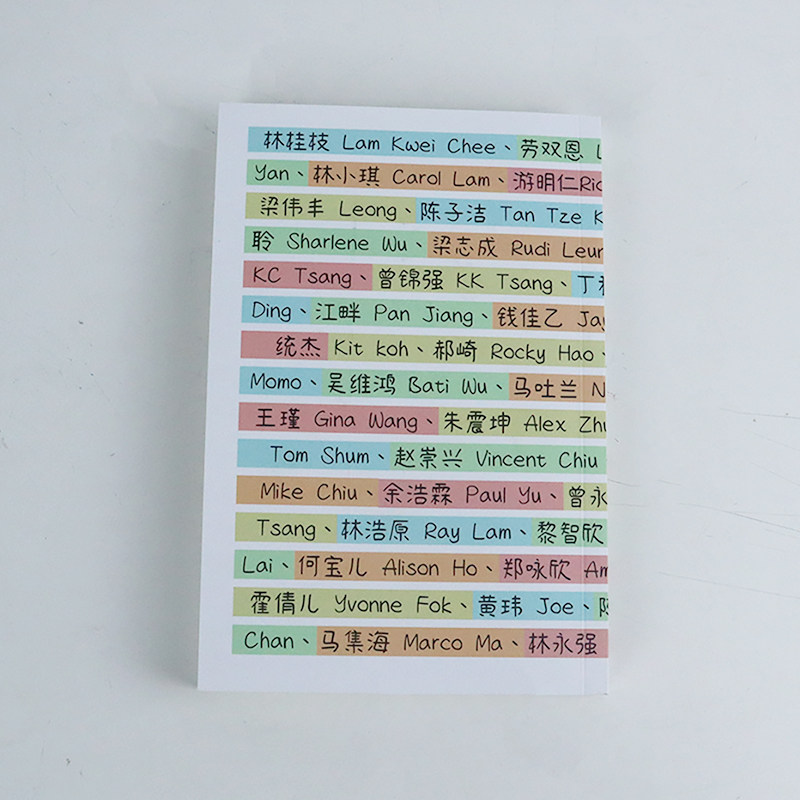 林桂枝 Lam Kwei Chee、劳双恩
Yan、林小琪 Carol Lam、游明仁Ric
梁伟丰 Leong、陈子洁 Tan Tze K
聆 Sharlene Wu、梁志成 Rudi Leun
KC Tsang、曾锦强 KK Tsang、丁
Ding、江畔 Pan Jiang、钱佳乙 Jay
统杰 Kit Koh、郝崎 Rocky Hao、
Momo、吴维鸿 Bati Wu、马吐兰 N
王瑾 Gina Wang、朱震坤 Alex Zhu
Tom Shum、赵崇兴 Vincent Chiu
Mike Chiu、余浩霖 Paul Yu、曾永
Tsang、林浩原 Ray Lam、黎智欣
Lai、何宝儿 Alison Ho、郑咏欣 Am
霍倩儿 Yvonne Fok、黄玮 Joe、
Chan、马集海 Marco Ma、林永强